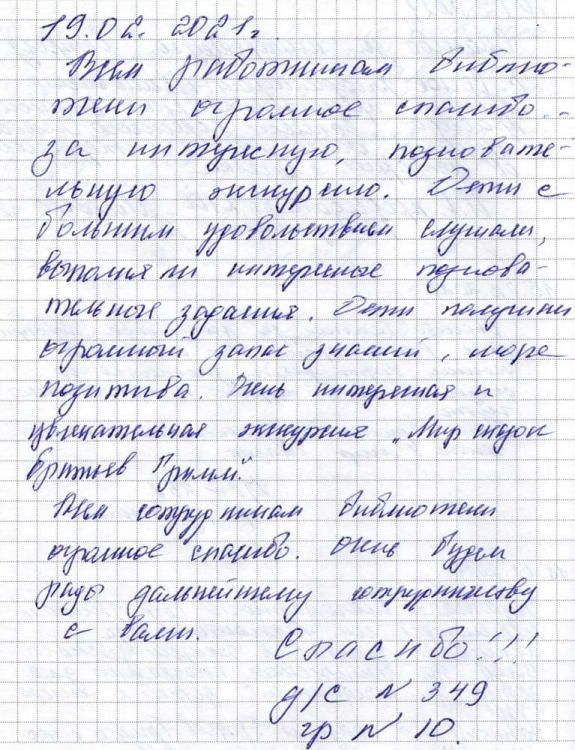 19.02. 2021г.
Всем работникам библио-
теки огромное спасибо
за интересную, познавате-
льную экскурсию. Дети с
большим удовольствием слушали,
выполняли интересные познова-
тельные задания. Дети получили
огромный запас знаний, море
позитива. Очень интересная и
увлекательная экскурсия „Мир сказок
братьев Гримм".
Всем сотрудникам библиотеки
огромное спасибо. Очень будем
рады дальнейшему сотрудничеству
с Вами.
Спасибо!!!
д/с N 349
гр N 10.